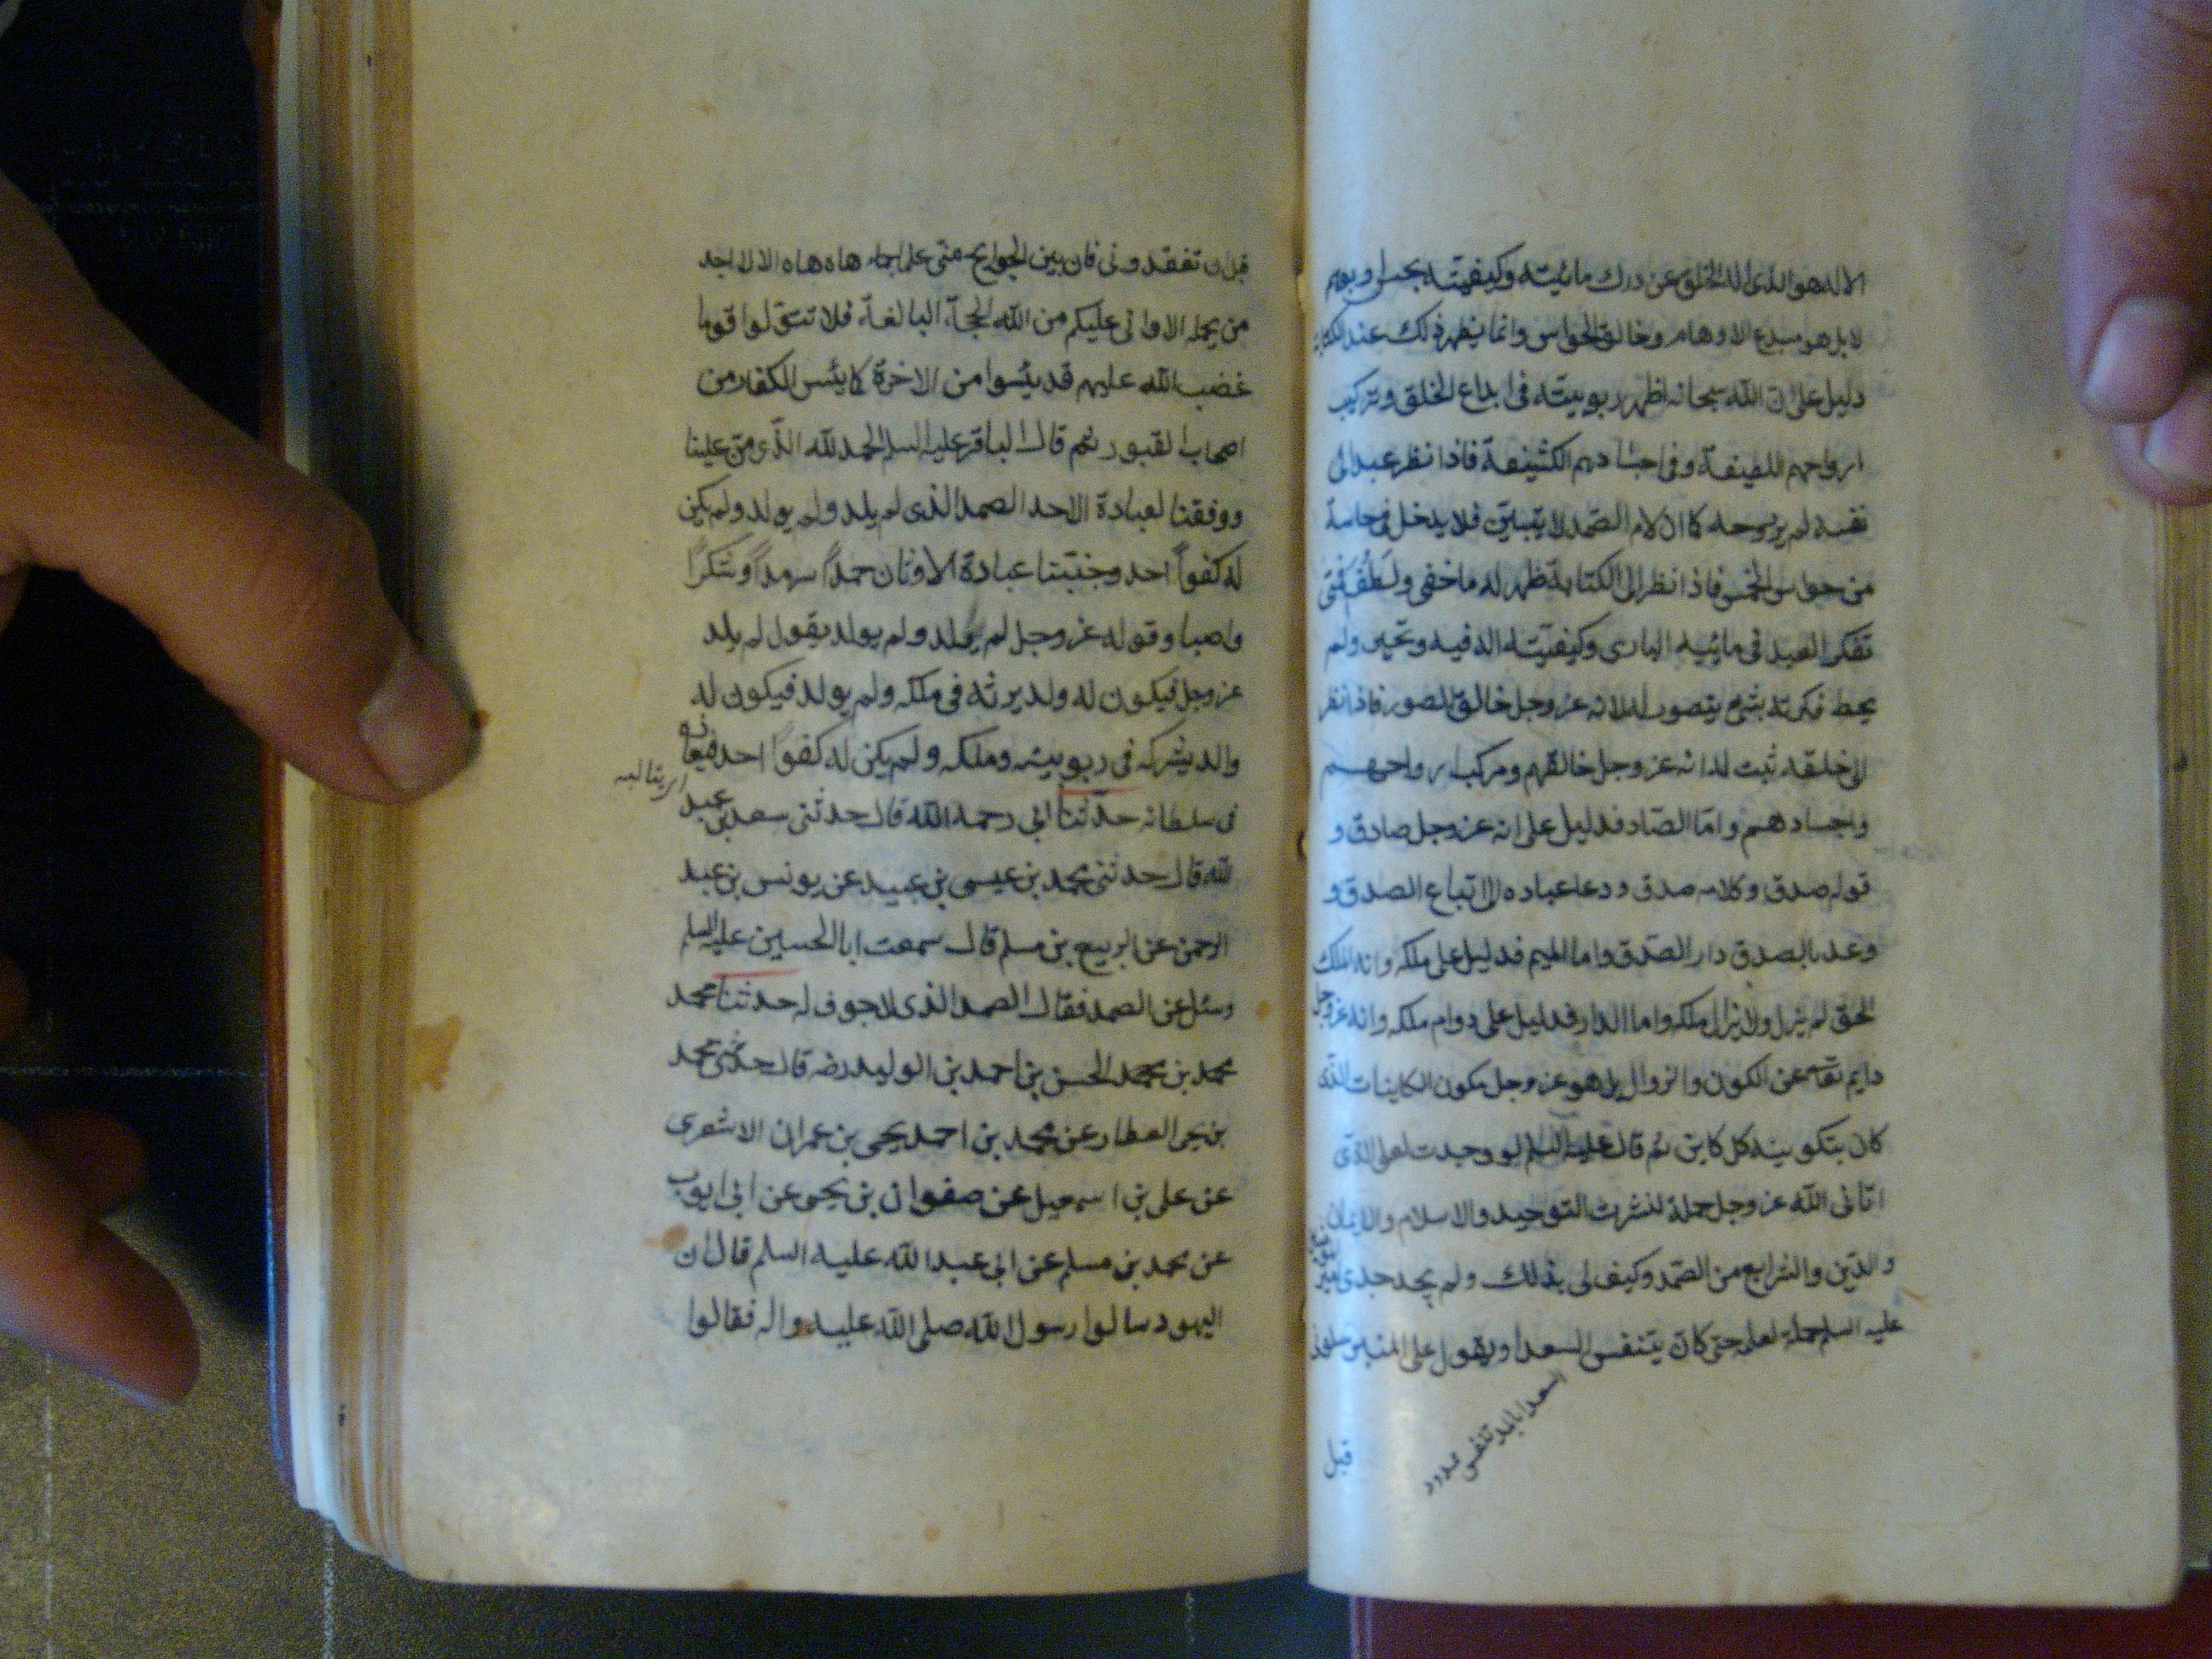 الاله هو الذى اله الخلق عن درك مائيته وكيفيته بحس او بوهم
لا بل هو مبدع الاوهام وخالق الحواس وانما يظهر ذلك عند الكتابة
دليل على ان الله سبحانه اظهر ربوبيته فى ابداع الخلق وتركيب
ارواحهم اللطيفة وفى اجسادهم الكثيفة فاذا نظر عبد الى
نفسه لم ير روحه كما ان لام الصمد لا يتبين فلا يدخل فى حاسة
من حواس الخمس فاذا نظر الى الكتابة ظهر له ما خفى ولطف فمتى
تفكر العبد فى مائية البارى وكيفيته اله فيه وتحير ولم
يحط فكرته بشئ يتصور له لانه عز وجل خالق الصور فاذا نظر
الى خلقه ثبت له انه عز وجل خالقهم ومركب ارواحهم
واجسادهم واما الصاد فدليل على انه عز وجل صادق و
قوله صدق وكلامه صدق ودعا عباده الى اتباع الصدق و
وعد بالصدق دار الصدق واما الميم فدليل على ملكه وانه الملك
الحق لم يزل ولا يزال ملكه واما الدال فدليل على دوام ملكه وانه عز وجل
دايم تعالى عن الكون والزوال بل هو عز وجل مكون الكاينات الذى
كان بتكوينه كل كاين ثم قال عليه السلم لو وجدت لعلمى الذى
اتانى الله عز وجل حملة لنشرت التوحيد والاسلام والايمان
والدين والشرايع من الصمد وكيف لى بذلك ولم يجد جدى امير المؤمنين
عليه السلم حملة لعلمه حتى كان يتنفس الصعدا ويقول على المنبر سلونى
قبل
قبل ان تفقدونى فان بين الجوانح منى علما جما هاه هاه الا لا اجد
من يحمله الا وانى عليكم من الله الحجة البالغة فلا تتولوا قوما
غضب الله عليهم قد يئسوا من الاخرة كما يئس الكفار من
اصحاب القبور ثم قال الباقر عليه السلم الحمد لله الذى من علينا
ووفقنا لعبادة الاحد الصمد الذى لم يلد ولم يولد ولم يكن
له كفواً احد وجنبنا عبادة الاوثان حمداً سرمداً وشكراً
واصبا وقوله عز وجل لم يلد ولم يولد يقول لم يلد
عز وجل فيكون له ولد يرثه فى ملكه ولم يولد فيكون له
والد يشركه فى ربوبيته وملكه ولم يكن له كفوا احد
فى سلطانه حدثنا ابى رحمه الله قال حدثنى سعد بن عبد
لله قال حدثنى محمد بن عيسى بن عبيد عن يونس بن عبد
الرحمن عن الربيع بن مسلم قال سمعت ابا الحسين عليه السلم
وسئل عن الصمد فقال الصمد الذى لا جوف له حدثنا محمد
محمد بن محمد الحسن بن احمد بن الوليد رضه قال حدثنى محمد
بن يحى العطار عن محمد بن احمد يحيى بن عمران الاشعرى
عن على بن اسمعيل عن صفوان بن يحيى عن ابى ايوب
عن محمد بن مسلم عن ابى عبد الله عليه السلم قال ان
اليهود سالوا رسول الله صلى الله عليه واله فقالوا